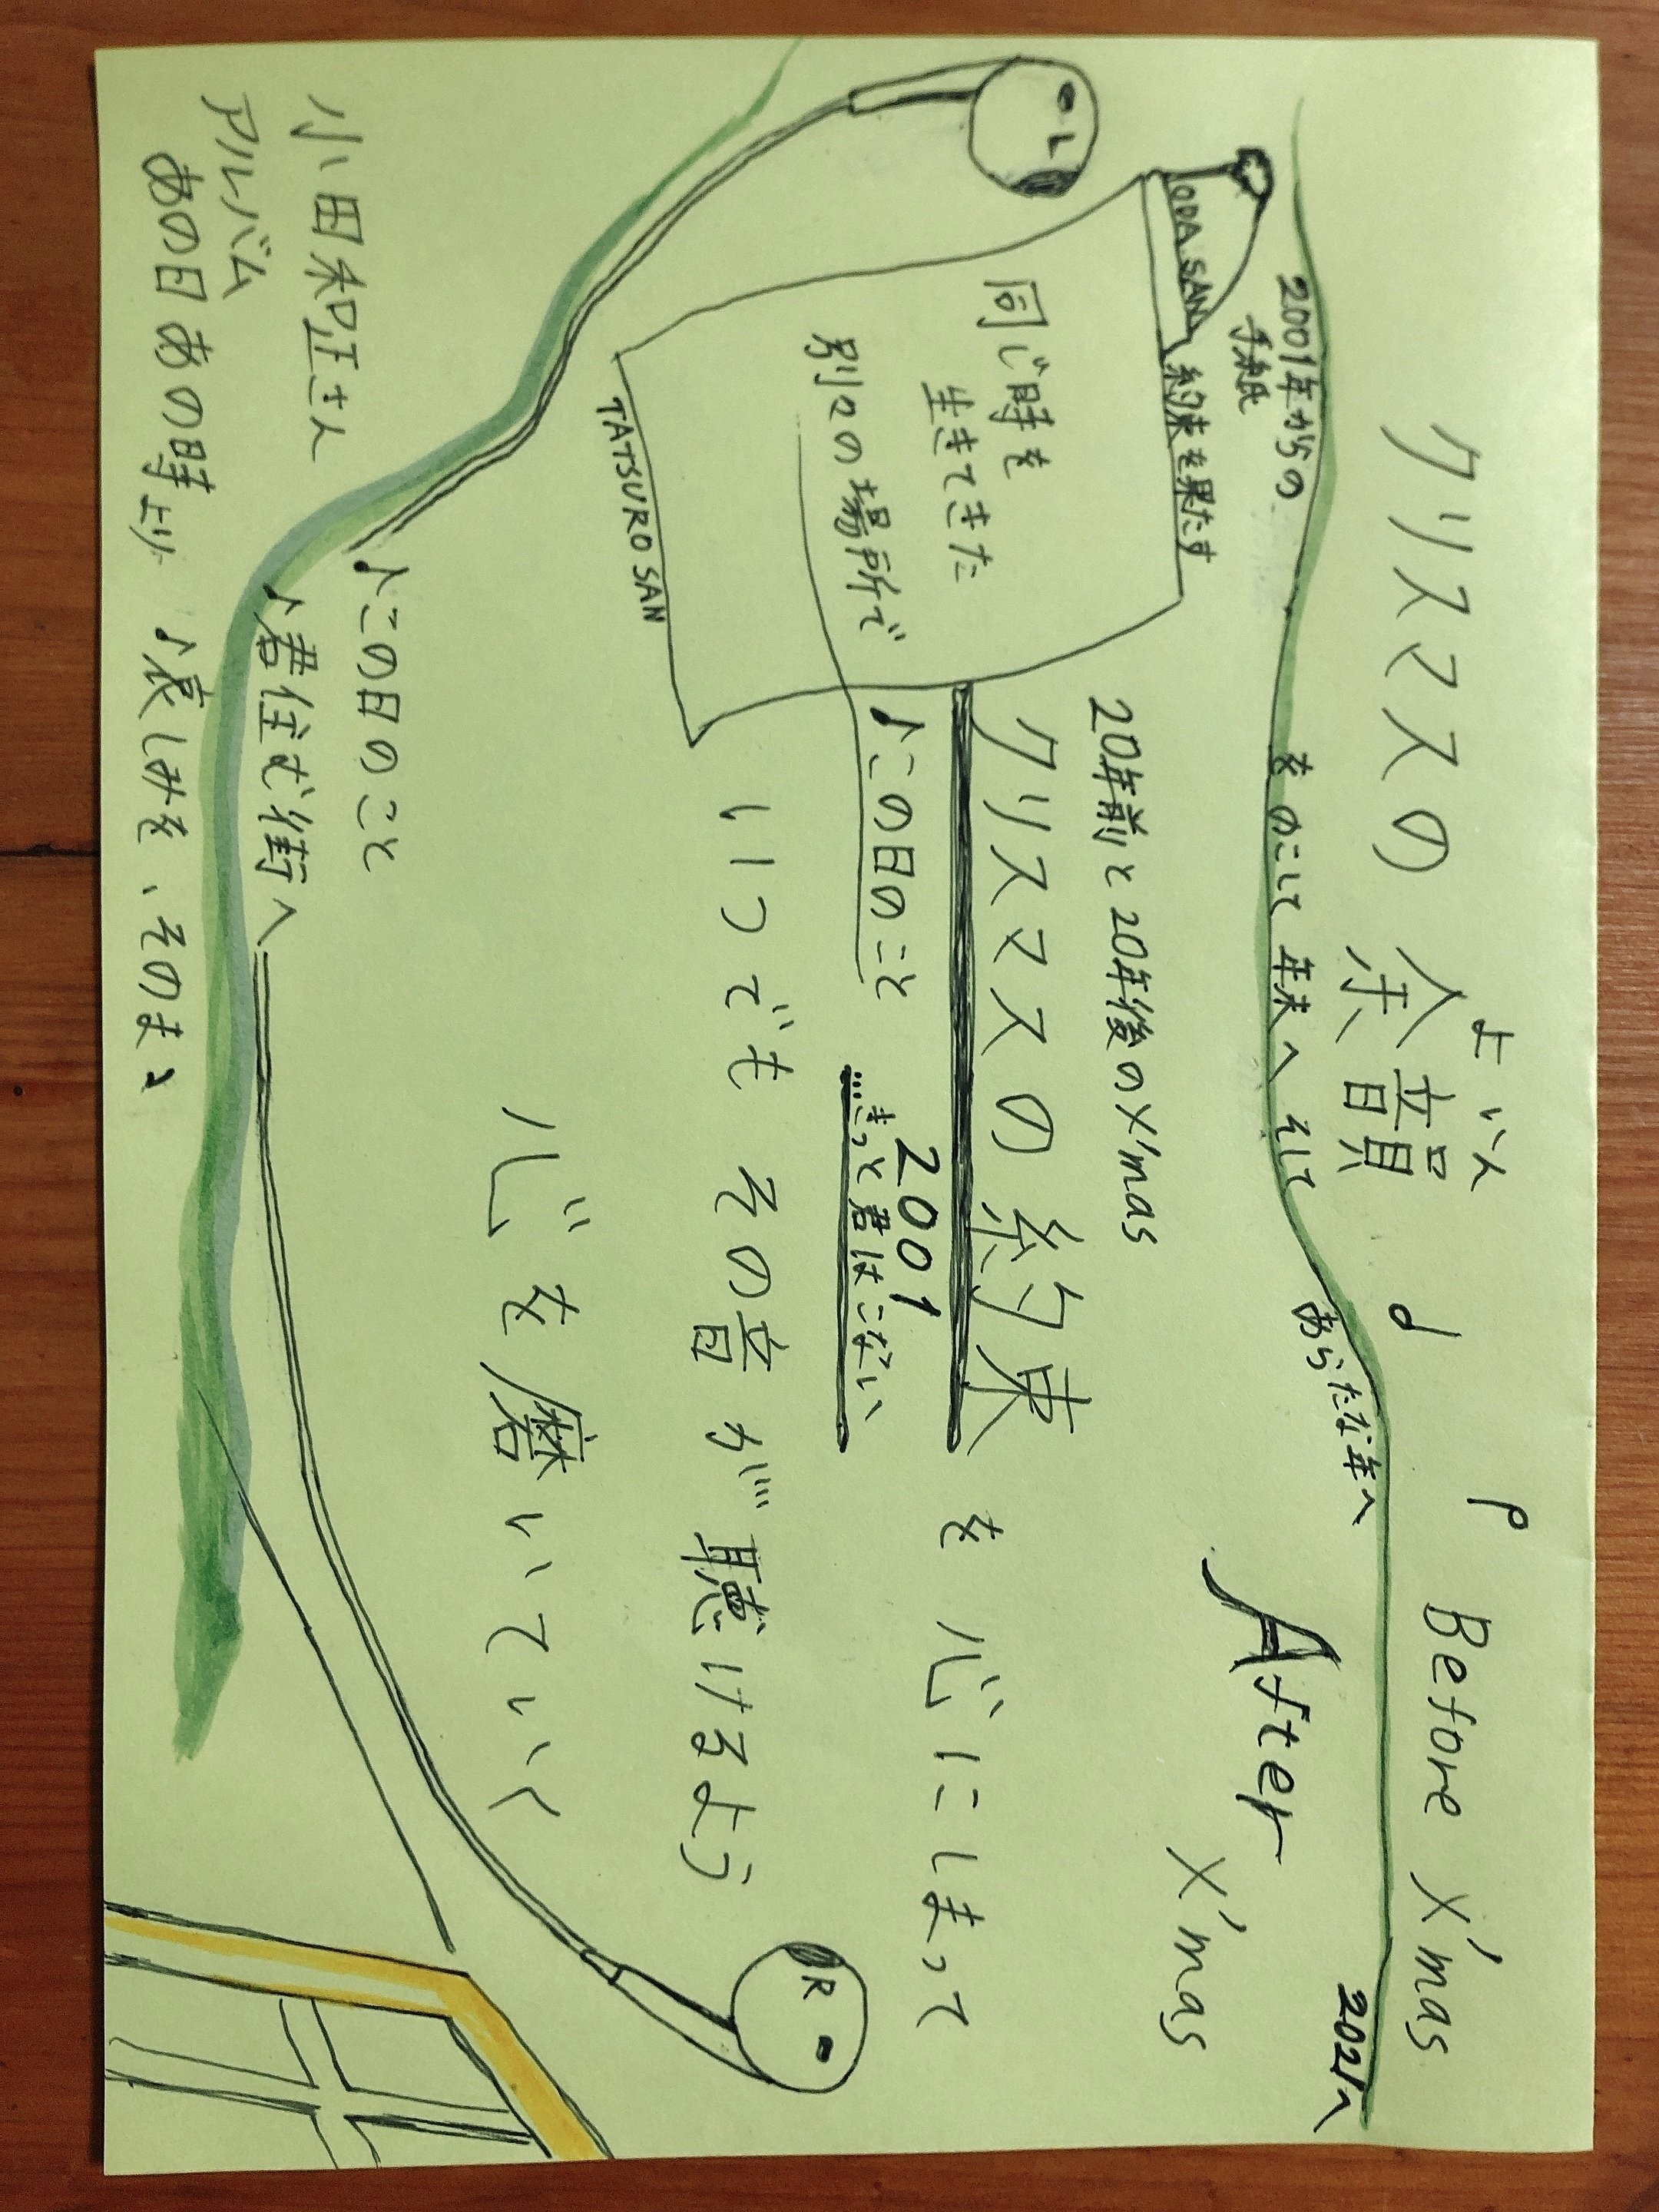 よいん
クリスマスの余韻
Before X'mas
2001年からの
手紙
をのこして 年末へ そして
あらたな年へ
2021へ
After
X'mas
ODA SAN
約束を果たす
同じ時を
生きてきた
別々の場所で
TATSURO SAN
20年前と20年後のX'mas
クリスマスの約束を心にしまって
♪この日のこと
2001
…きっと君はこない
いつでも その音が聴けるよう
心を磨いていく
L
R
♪この日のこと
♪君住む街へ
小田和正さん
アルバム
あの日あの時より ♪哀しみを、そのまゝ